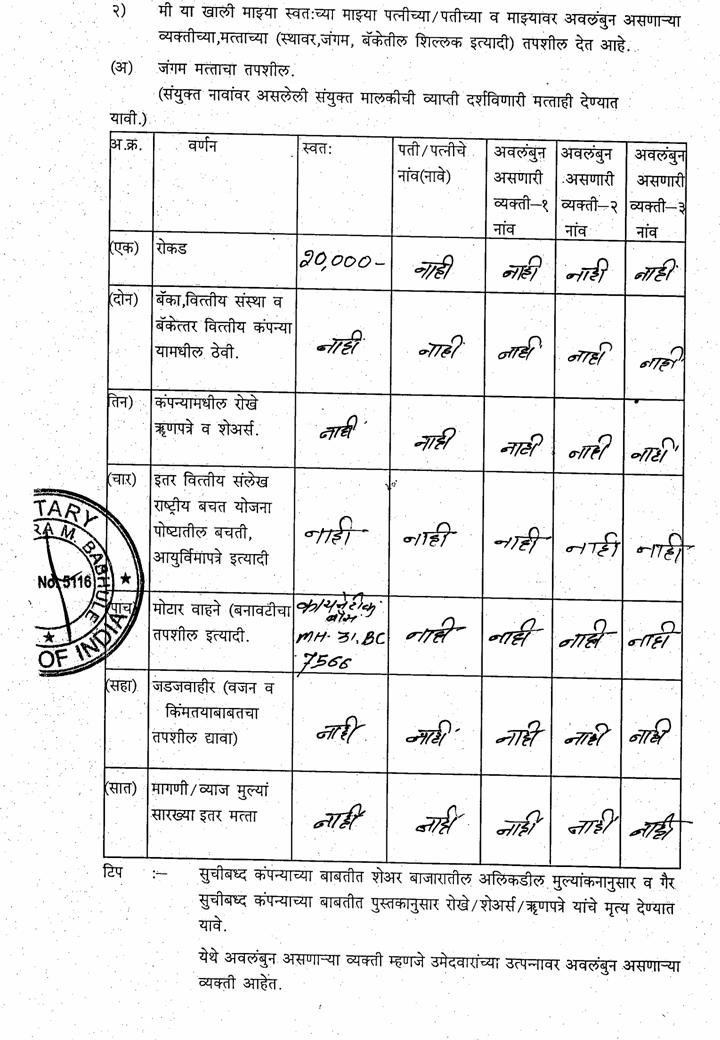 २) मी या खाली माझ्या स्वतःच्या माझ्या पत्नीच्या/पतीच्या व माझ्यावर अवलंबुन असणाऱ्या
व्यक्तीच्या,मत्ताच्या (स्थावर,जंगम, बॅकेतील शिल्लक इत्यादी) तपशील देत आहे.
(अ) जंगम मत्ताचा तपशील.
(संयुक्त नावांवर असलेली संयुक्त मालकीची व्याप्ती दर्शविणारी मत्ताही देण्यात
यावी.)
अ.क्र. वर्णन स्वतः पती/पत्नीचे अवलंबुन अवलंबुन अवलंबुन
नांव(नावे) असणारी असणारी असणारी
व्यक्ती–१ व्यक्ती–२ व्यक्ती–३
नांव नांव नांव
(एक) रोकड २0,000- नाही नाही नाही नाही
(दोन) बॅका,वित्तीय संस्था व
बॅकेत्तर वित्तीय कंपन्या
यामधील ठेवी. नाही नाही नाही नाही नाही
(तिन) कंपन्यामधील रोखे
ऋणपत्रे व शेअर्स. नाही नाही नाही नाही नाही
(चार) इतर वित्तीय संलेख
राष्ट्रीय बचत योजना
पोष्टातील बचती, नाही नाही नाही नाही नाही
आयुर्विमापत्रे इत्यादी
(पाच) मोटार वाहने (बनावटीचा कायनेटीक
तपशील इत्यादी. बॉस
MH. 31. BC नाही नाही नाही नाही
7566
(सहा) जडजवाहीर (वजन व
किंमतयाबाबतचा
तपशील द्यावा) नाही नाही नाही नाही नाही
(सात) मागणी/व्याज मुल्यां
सारख्या इतर मत्ता नाही नाही नाही नाही नाही
टिप :– सुचीबध्द कंपन्याच्या बाबतीत शेअर बाजारातील अलिकडील मुल्यांकनानुसार व गैर
सुचीबध्द कंपन्याच्या बाबतीत पुस्तकानुसार रोखे/शेअर्स/ऋणपत्रे यांचे मृत्य देण्यात
यावे.
येथे अवलंबुन असणाऱ्या व्यक्ती म्हणजे उमेदवारांच्या उत्पन्नावर अवलंबुन असणाऱ्या
व्यक्ती आहेंत.
TARY
RA M. BABHULE
No. 5116
OF INDIA